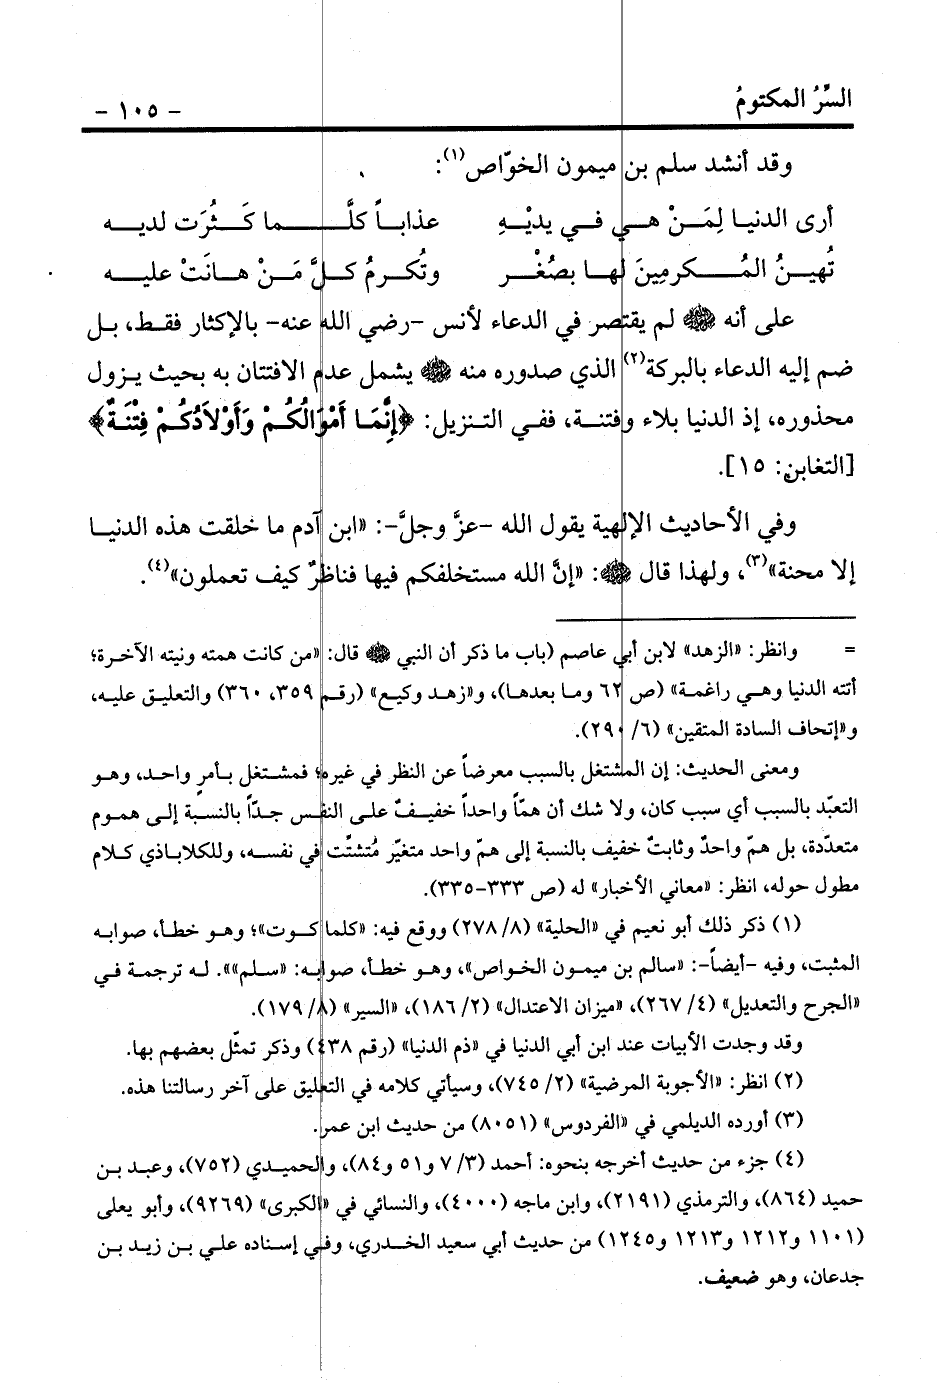 السِّرُّ المكتومُ - ١٠٥ -
وقد أنشد سلم بن ميمون الخوّاص(١):
أرى الدنيا لِمَنْ هي في يديْهِ عذاباً كلَّما كَثُرَت لديه
تُهينُ المُكرمِينَ لها بصُغْر وتُكرمُ كلَّ مَنْ هانَتْ عليه
على أنه ﷺ لم يقتصر في الدعاء لأنس -رضي الله عنه- بالإكثار فقط، بل
ضم إليه الدعاء بالبركة(٢) الذي صدوره منه ﷺ يشمل عدم الافتتان به بحيث يزول
محذوره، إذ الدنيا بلاء وفتنة، ففي التنزيل: ﴿إِنَّمَا أَمْوَالُكُمْ وَأَوْلَادُكُمْ فِتْنَةٌ﴾
[التغابن: ١٥].
وفي الأحاديث الإلهية يقول الله -عزَّ وجلَّ-: «ابن آدم ما خلقت هذه الدنيا
إلا محنة»(٣)، ولهذا قال ﷺ: «إنَّ الله مستخلفكم فيها فناظرٌ كيف تعملون»(٤).
= وانظر: «الزهد» لابن أبي عاصم (باب ما ذكر أن النبي ﷺ قال: «من كانت همته ونيته الآخرة؛
أتته الدنيا وهي راغمة» (ص ٦٢ وما بعدها)، و«زهد وكيع» (رقم ٣٥٩، ٣٦٠) والتعليق عليه،
و«إتحاف السادة المتقين» (٦/ ٢٩٠).
ومعنى الحديث: إن المشتغل بالسبب معرضاً عن النظر في غيره؛ فمشتغل بأمرٍ واحد، وهو
التعبّد بالسبب أي سبب كان، ولا شك أن همّاً واحداً خفيفٌ على النفس جدّاً بالنسبة إلى هموم
متعدّدة، بل همّ واحدٌ وثابتٌ خفيف بالنسبة إلى همّ واحد متغيّر مُتشتّت في نفسه، وللكلاباذي كلام
مطول حوله، انظر: «معاني الأخبار» له (ص ٣٣٣-٣٣٥).
(١) ذكر ذلك أبو نعيم في «الحلية» (٨/ ٢٧٨) ووقع فيه: «كلما كوت»؛ وهو خطأ، صوابه
المثبت، وفيه -أيضاً-: «سالم بن ميمون الخواص»، وهو خطأ، صوابه: «سلم»». له ترجمة في
«الجرح والتعديل» (٤/ ٢٦٧)، «ميزان الاعتدال» (٢/ ١٨٦)، «السير» (٨/ ١٧٩).
وقد وجدت الأبيات عند ابن أبي الدنيا في «ذم الدنيا» (رقم ٤٣٨) وذكر تمثّل بعضهم بها.
(٢) انظر: «الأجوبة المرضية» (٢/ ٧٤٥)، وسيأتي كلامه في التعليق على آخر رسالتنا هذه.
(٣) أورده الديلمي في «الفردوس» (٨٠٥١) من حديث ابن عمر.
(٤) جزء من حديث أخرجه بنحوه: أحمد (٣/ ٧ و٥١ و٨٤)، والحميدي (٧٥٢)، وعبد بن
حميد (٨٦٤)، والترمذي (٢١٩١)، وابن ماجه (٤٠٠٠)، والنسائي في «الكبرى» (٩٢٦٩)، وأبو يعلى
(١١٠١ و١٢١٢ و١٢١٣ و١٢٤٥) من حديث أبي سعيد الخدري، وفي إسناده علي بن زيد بن
جدعان، وهو ضعيف.